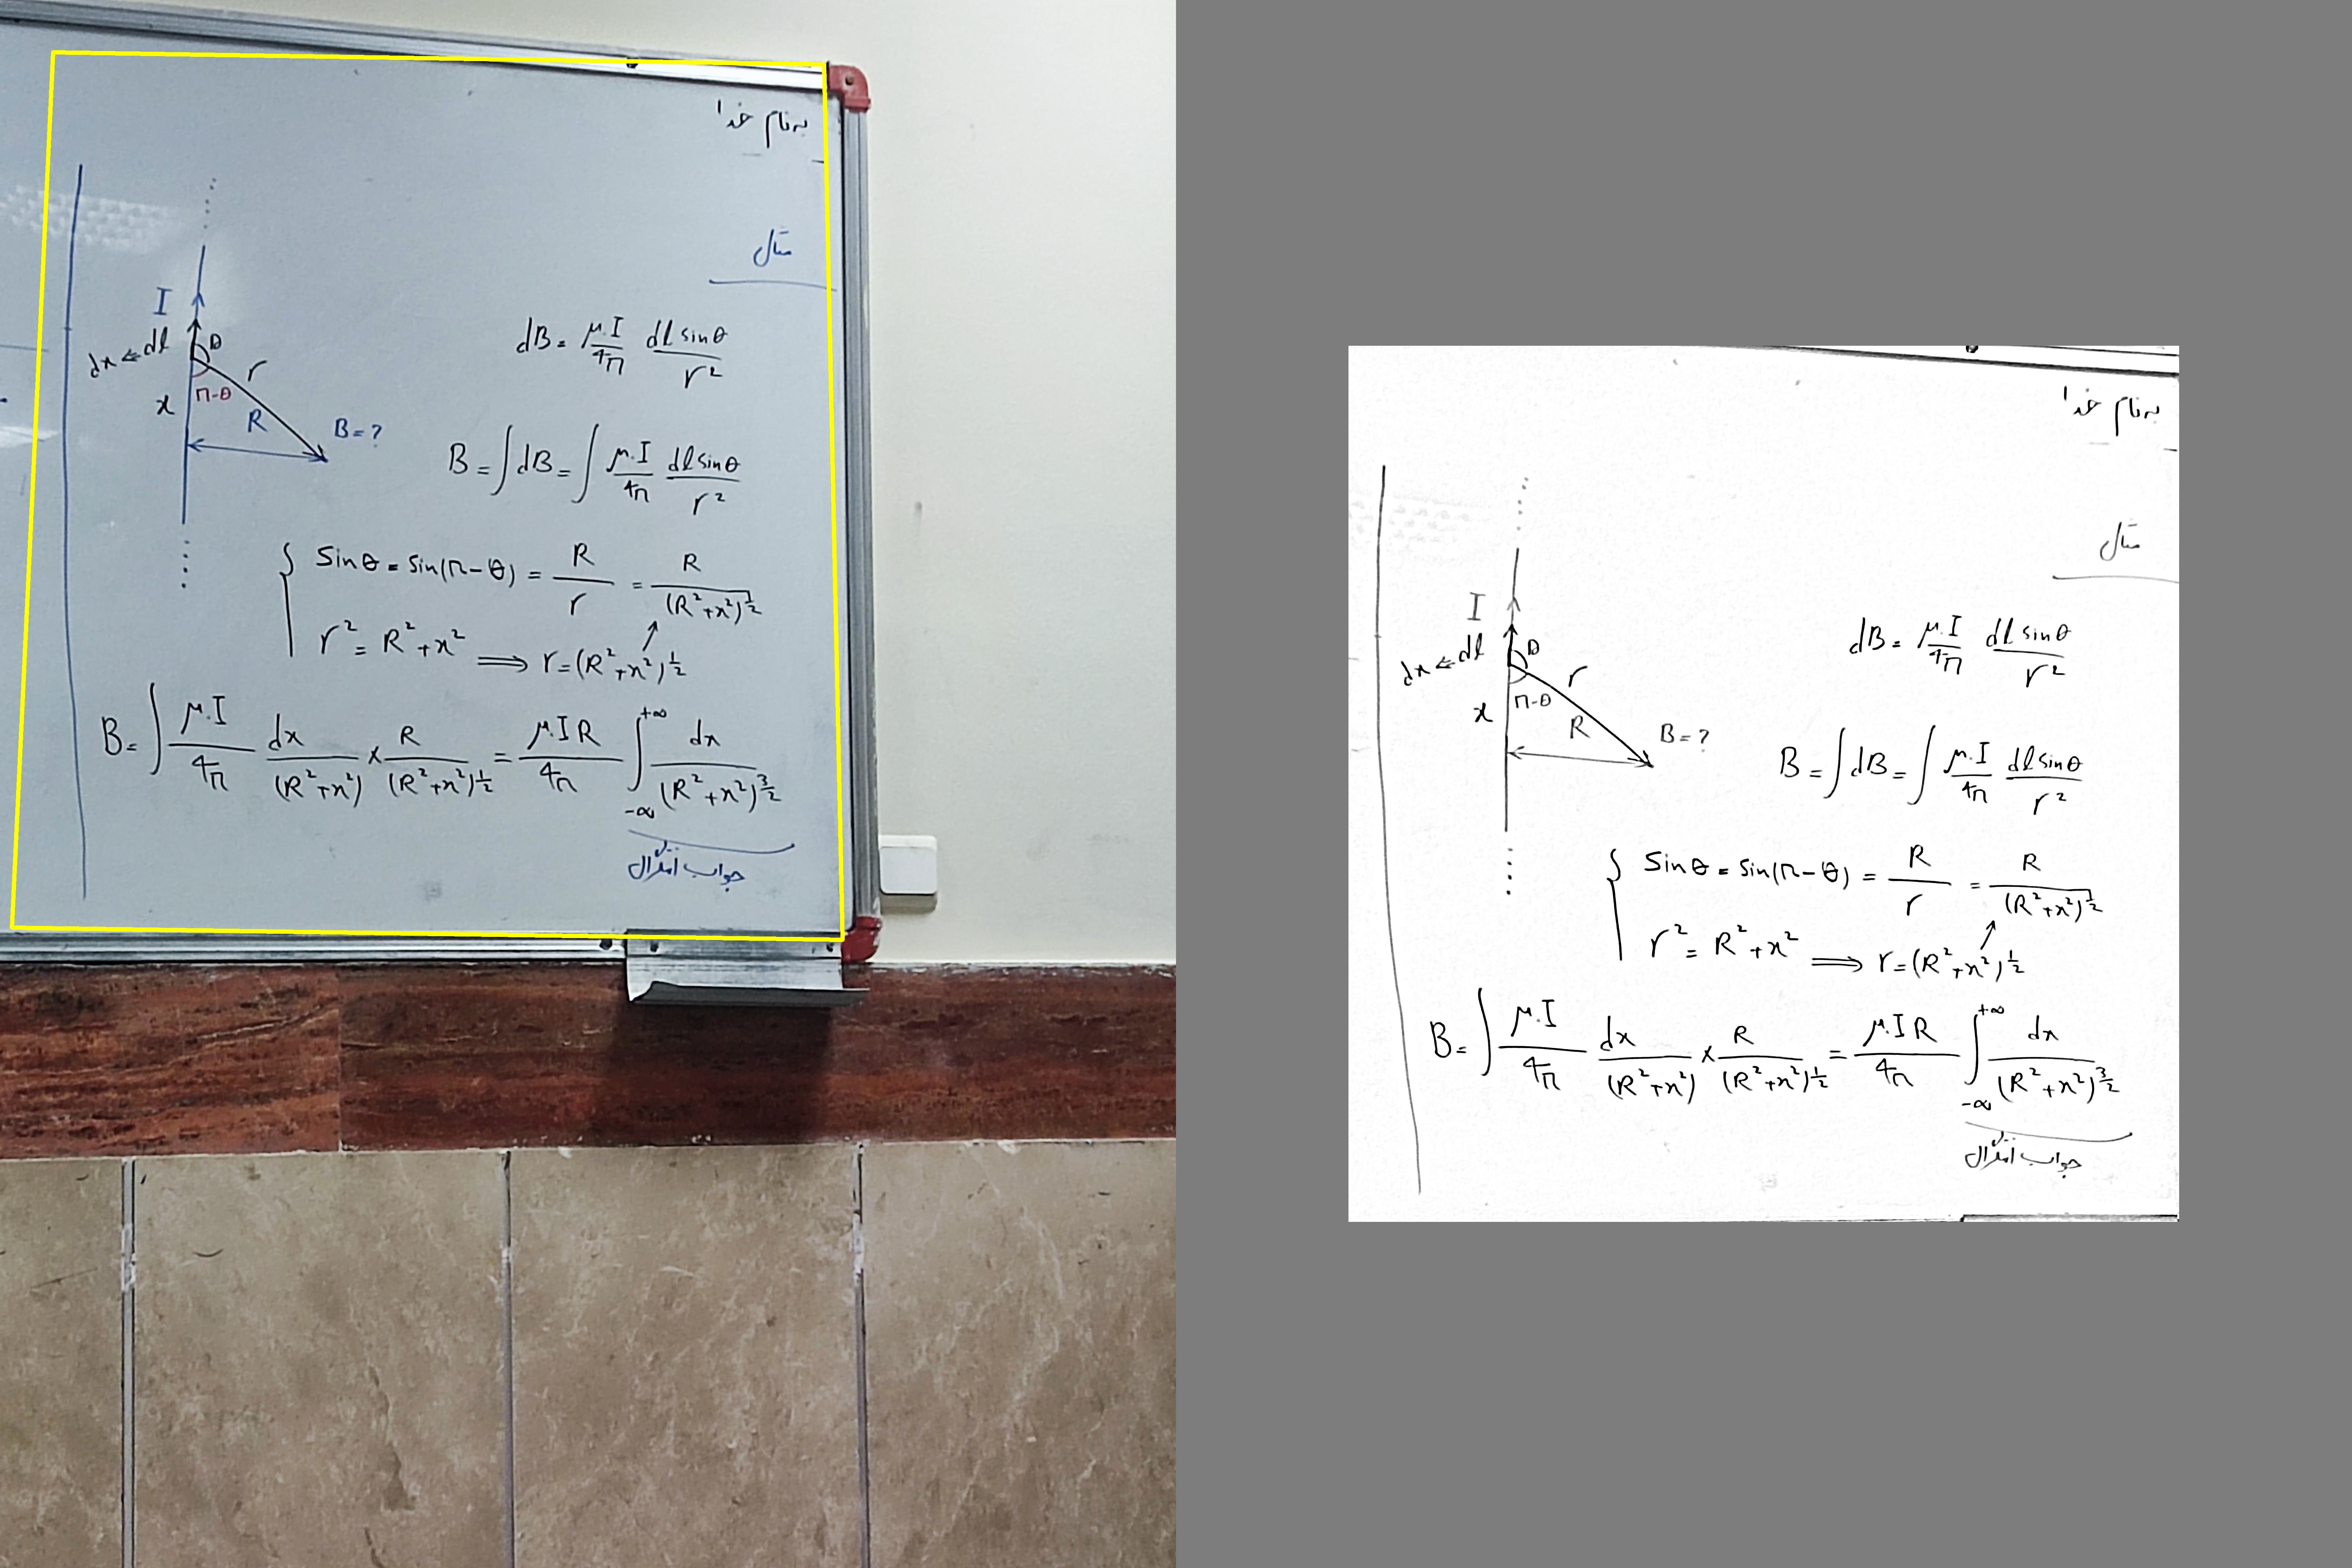 به نام خدا
مثال
I
dx ⇐ dl θ
r
π-θ
x
R
B = ?
dB = μ.I/4π dl sinθ/r²
B = ∫dB = ∫ μ.I/4π dl sinθ/r²
{ Sinθ = Sin(π-θ) = R/r = R/(R²+x²)^½
r² = R²+x² ⟹ r = (R²+x²)^½
B = ∫ μ.I/4π dx/(R²+x²) × R/(R²+x²)^½ = μ.I R/4π ∫_{-∞}^{+∞} dx/(R²+x²)^{3/2}
جواب انتگرال
به نام خدا
مثال
I
dx ⇐ dl θ
r
π-θ
x
R
B = ?
dB = μ.I/4π dl sinθ/r²
B = ∫dB = ∫ μ.I/4π dl sinθ/r²
{ Sinθ = Sin(π-θ) = R/r = R/(R²+x²)^½
r² = R²+x² ⟹ r = (R²+x²)^½
B = ∫ μ.I/4π dx/(R²+x²) × R/(R²+x²)^½ = μ.I R/4π ∫_{-∞}^{+∞} dx/(R²+x²)^{3/2}
جواب انتگرال